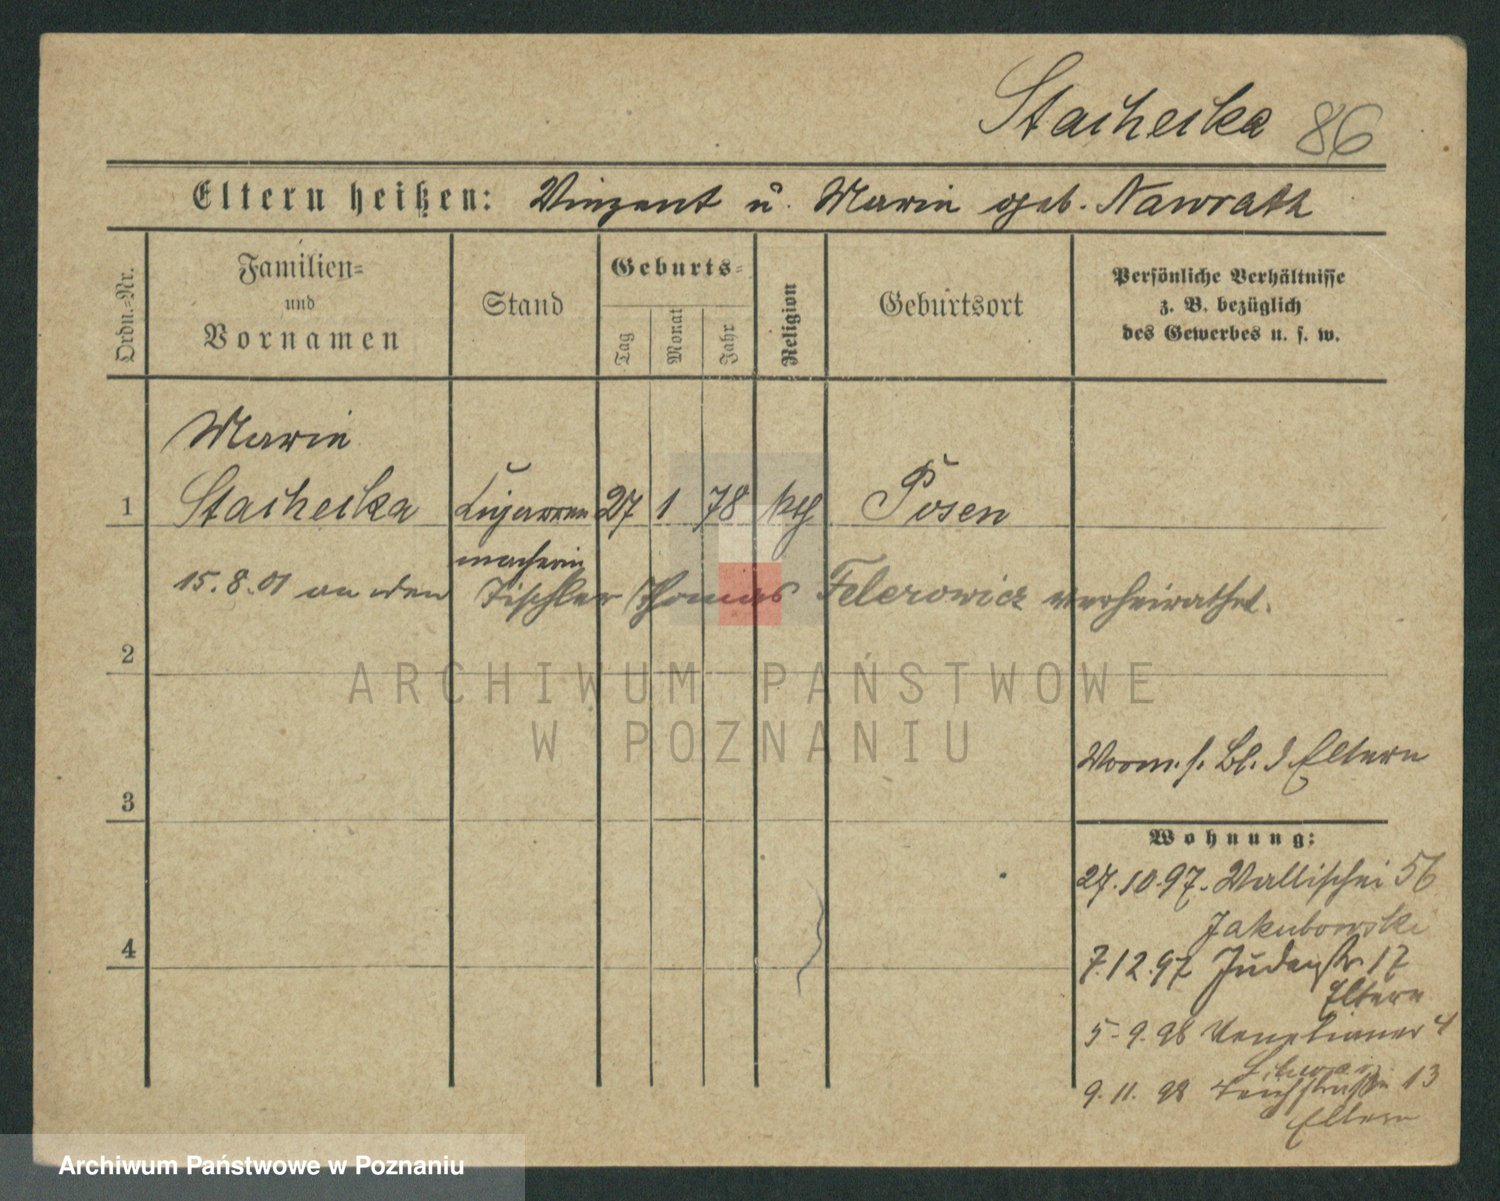 Stacheika 86
Eltern heißen: Vinzent u. Marie geb. Nawrath
Ordn.-Nr.
Familien-
und
Vornamen
Stand
Geburts-
Tag
Monat
Jahr
Religion
Geburtsort
Persönliche Verhältnisse
z. B. bezüglich
des Gewerbes u. s. w.
Marie
1 Stacheika Cigarren 27 1 78 kth Posen
macherin
15.8.01 an den Tischler Thomas Felerowicz verheirathet.
2
ARCHIWUM PAŃSTWOWE
W POZNANIU
Vorm. s. Bl. d Eltern
3
Wohnung:
27.10.97. Wallischei 56
Jakubowski
4
7.12.97 Judenstr. 17
Eltern
5.9.98 Venetianer 4
9.11.98 Teichstraße 13
Eltern
Archiwum Państwowe w Poznaniu